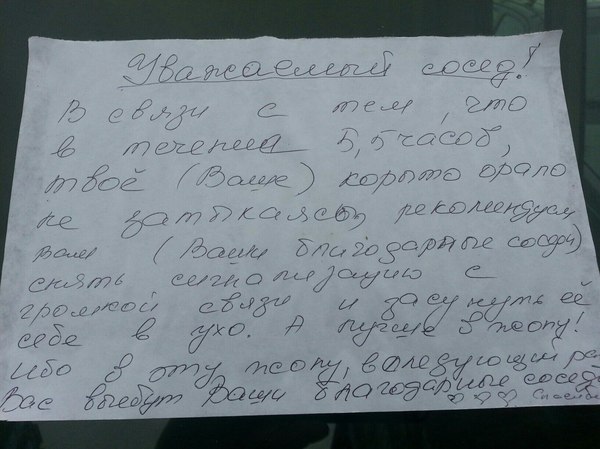 Уважаемый сосед!
В связи с тем, что
в течении 5,5 часов,
твоё (Ваше) корыто орало
не затыкаясь, рекомендуем
вам (Ваши благодарные соседи)
снять сигнализацию с
громкой связи и засунуть её
себе в ухо. А лучше в жопу!
Ибо в эту жопу, в следующий раз
Вас выебут Ваши благодарные соседи
♡♡♡ Спасибо